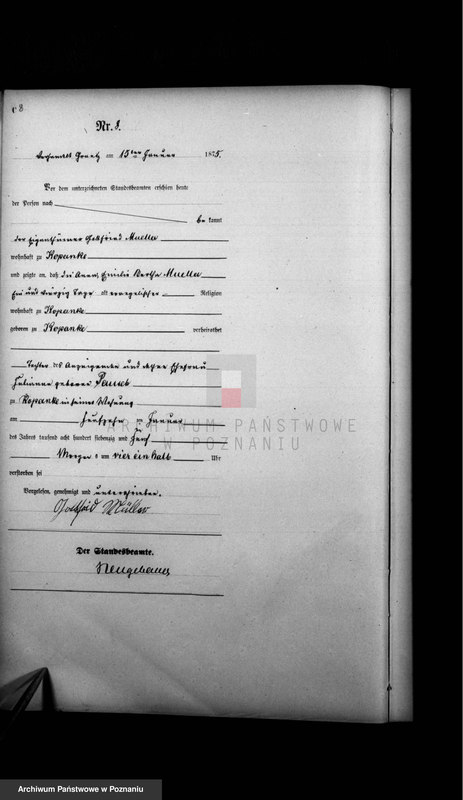 8
Nr. 8.
am 15ten Januar 1875.
Vor dem unterzeichneten Standesbeamten erschien heute
der Person nach
be kannt
der Eigenthümer Gottfried Mueller
wohnhaft zu Kopanke
und zeigte an, daß die Anna Emilie Bertha Mueller
Ein und vierzig Tage alt evangelischer Religion
wohnhaft zu Kopanke
geboren zu Kopanke verheirathet
Tochter des Anzeigenden und dessen Ehefrau
Julianne geborene
zu Kopanke in seiner Wohnung
am Fünfzehn ten Januar
des Jahres tausend acht hundert siebenzig und fünf
Morgens um vier ein halb Uhr
verstorben sei
Vorgelesen, genehmigt und unterschrieben.
Gottfried Müller
Der Standesbeamte.
Neugebauer
ARCHIWUM PAŃSTWOWE
W POZNANIU
Archiwum Państwowe w Poznaniu